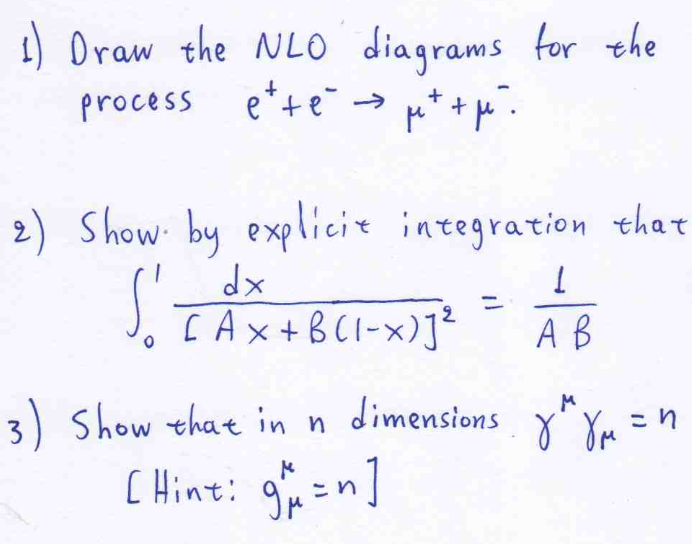 1) Draw the NLO diagrams for the
process e⁺+e⁻ → μ⁺+μ⁻.
2) Show by explicit integration that
∫₀¹ dx / [Ax+B(1-x)]² = 1 / AB
3) Show that in n dimensions γ^μ γ_μ = n
[Hint: g^μ_μ = n]